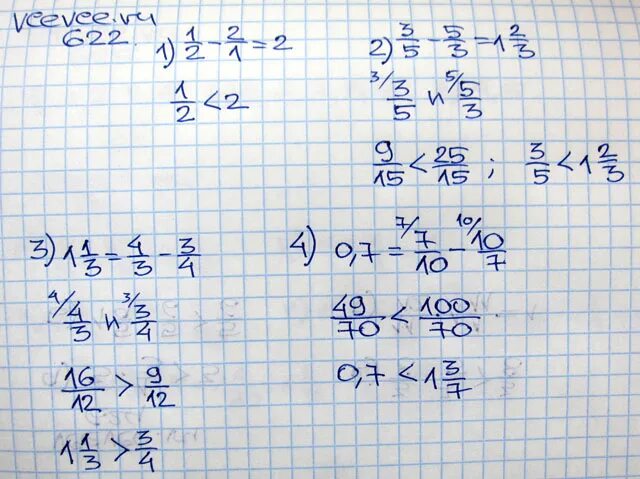 veevee.ru
622.
1) 1/2 - 2/1 = 2
1/2 < 2
2) 3/5 - 5/3 = 1 2/3
3/ 3/5 и 5/ 5/3
9/15 < 25/15 ; 3/5 < 1 2/3
3) 1 1/3 = 4/3 - 3/4
4/ 4/3 и 3/ 3/4
16/12 > 9/12
1 1/3 > 3/4
4) 0,7 = 7/ 7/10 - 10/ 10/7
49/70 < 100/70
0,7 < 1 3/7